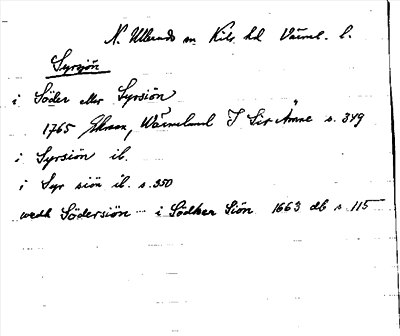 N. Ullerud sn Kils hd Värml. l.
Syrsjön
i Söder eller Syrsiön
1765 Ekman, Wärmeland I Sin Ämne s. 349
i Syrsiön ib.
i Syr siön ib. s. 350
wedh Södersiön i Södher Siön 1663 db s 115